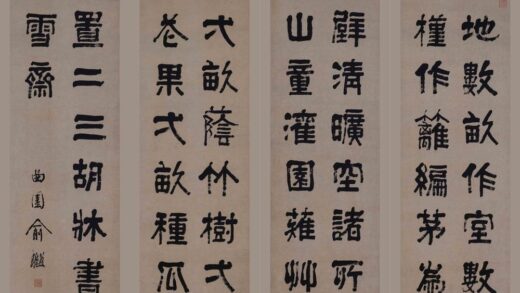 地數畝作室數
槿作籬編茅為
壁清曠空諸所
山童灌園薙艸
弌畝蔭竹樹弌
花果弌畝種瓜
置二三胡牀書
雪齋
曲園俞樾